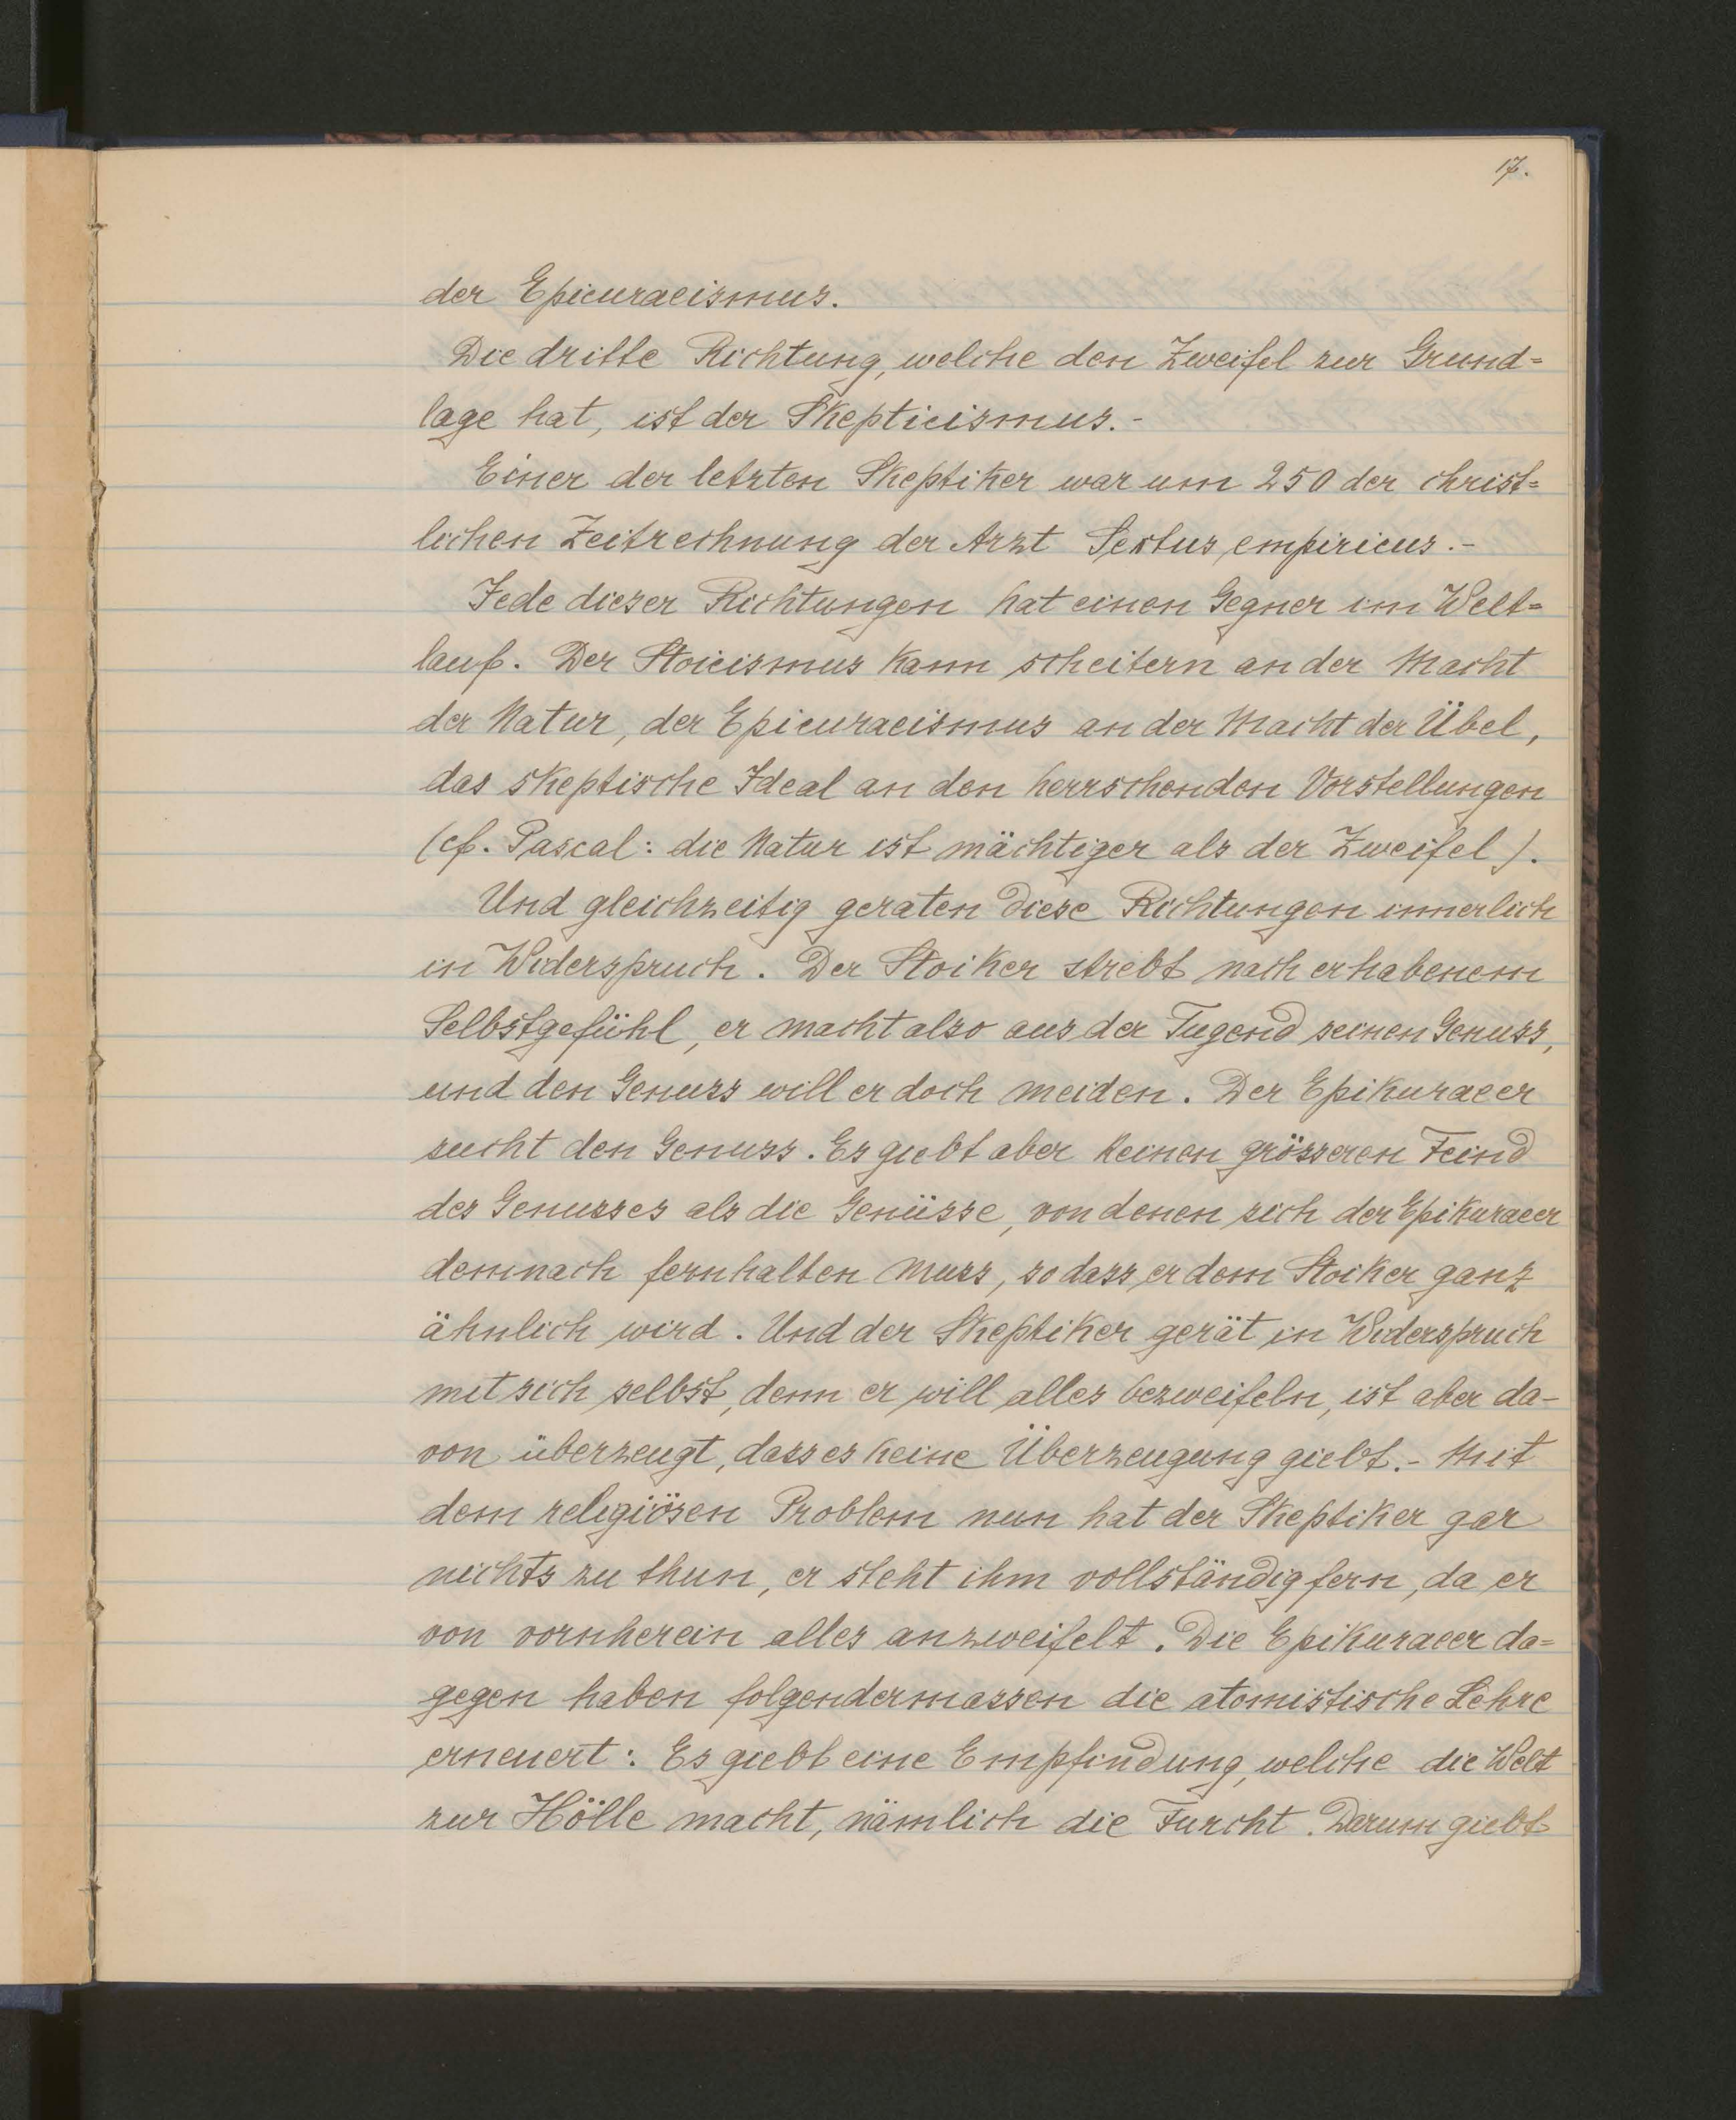 17.
der Epicuraeismus.
Die dritte Richtung, welche den Zweifel zur Grund=
lage hat, ist der Skepticismus.-
Einer der letzten Skeptiker war um 250 der christ=
lichen Zeitrechnung der Arzt Sextus empiricus.-
Jede dieser Richtungen hat einen Gegner im Welt=
lauf. Der Stoicismus kann scheitern an der Macht
der Natur, der Epicuraeismus an der Macht der Übel,
das skeptische Ideal an den herrschenden Vorstellungen
(cf. Pascal: die Natur ist mächtiger als der Zweifel).
Und gleichzeitig geraten diese Richtungen innerlich
in Widerspruch. Der Stoiker strebt nach erhabenem
Selbstgefühl, er macht also aus der Tugend seinen Genuss,
und den Genuss will er doch meiden. Der Epikuraeer
sucht den Genuss. Es giebt aber keinen grösseren Feind
des Genusses als die Genüsse, von denen sich der Epikuraeer
demnach fernhalten muss, so dass er dem Stoiker ganz
ähnlich wird. Und der Skeptiker gerät in Widerspruch
mit sich selbst, denn er will alles bezweifeln, ist aber da-
von überzeugt, dass es keine Überzeugung giebt.- Mit
dem religiösen Problem nun hat der Skeptiker gar
nichts zu thun, er steht ihm vollständig fern, da er
von vornherein alles anzweifelt. Die Epikuraeer da=
gegen haben folgendermassen die atomistische Lehre
erneuert: Es giebt eine Empfindung, welche die Welt
zur Hölle macht, nämlich die Furcht. Darum giebt